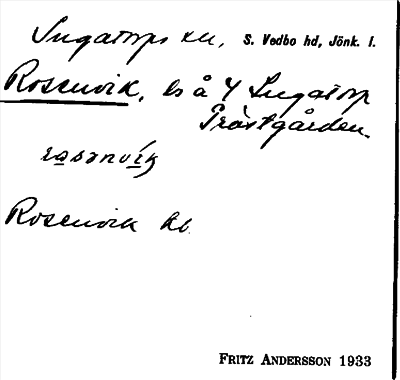 Ingatorps sn, S. Vedbo hd, Jönk. l.
Rosenvik, ls å 4 Ingatorp
Prästgården.
Rosenvik kb.
FRITZ ANDERSSON 1933